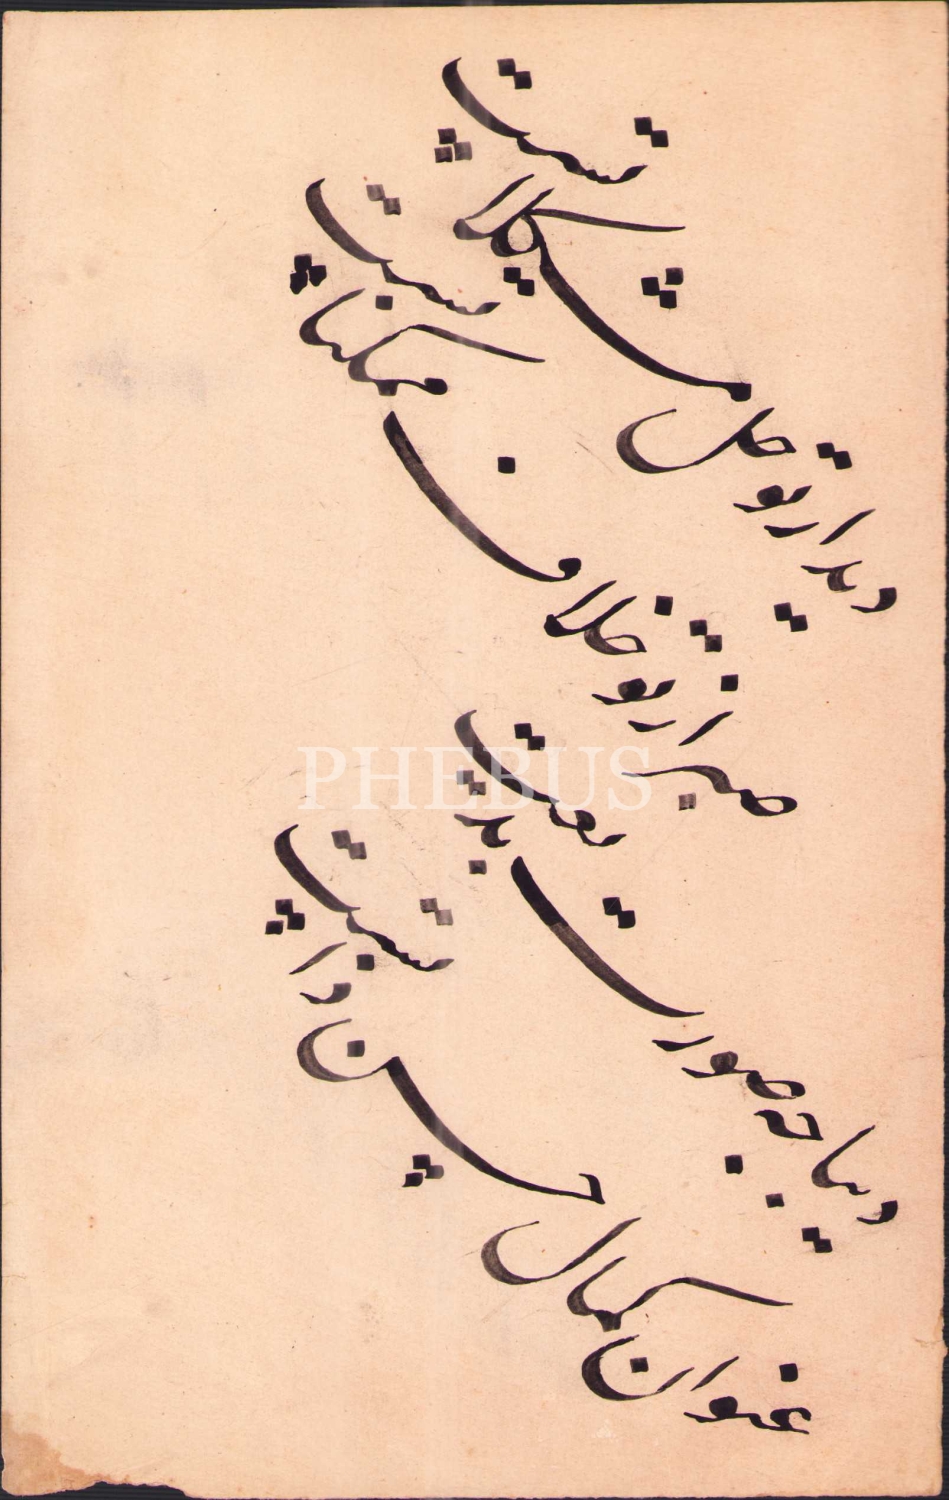 دیدار تو حل مشکلاتست
صبر از تو خلاف ممکناتست
دیباچه صورت بدیعت
عنوان کمال حسن ذاتست
PHEBUS